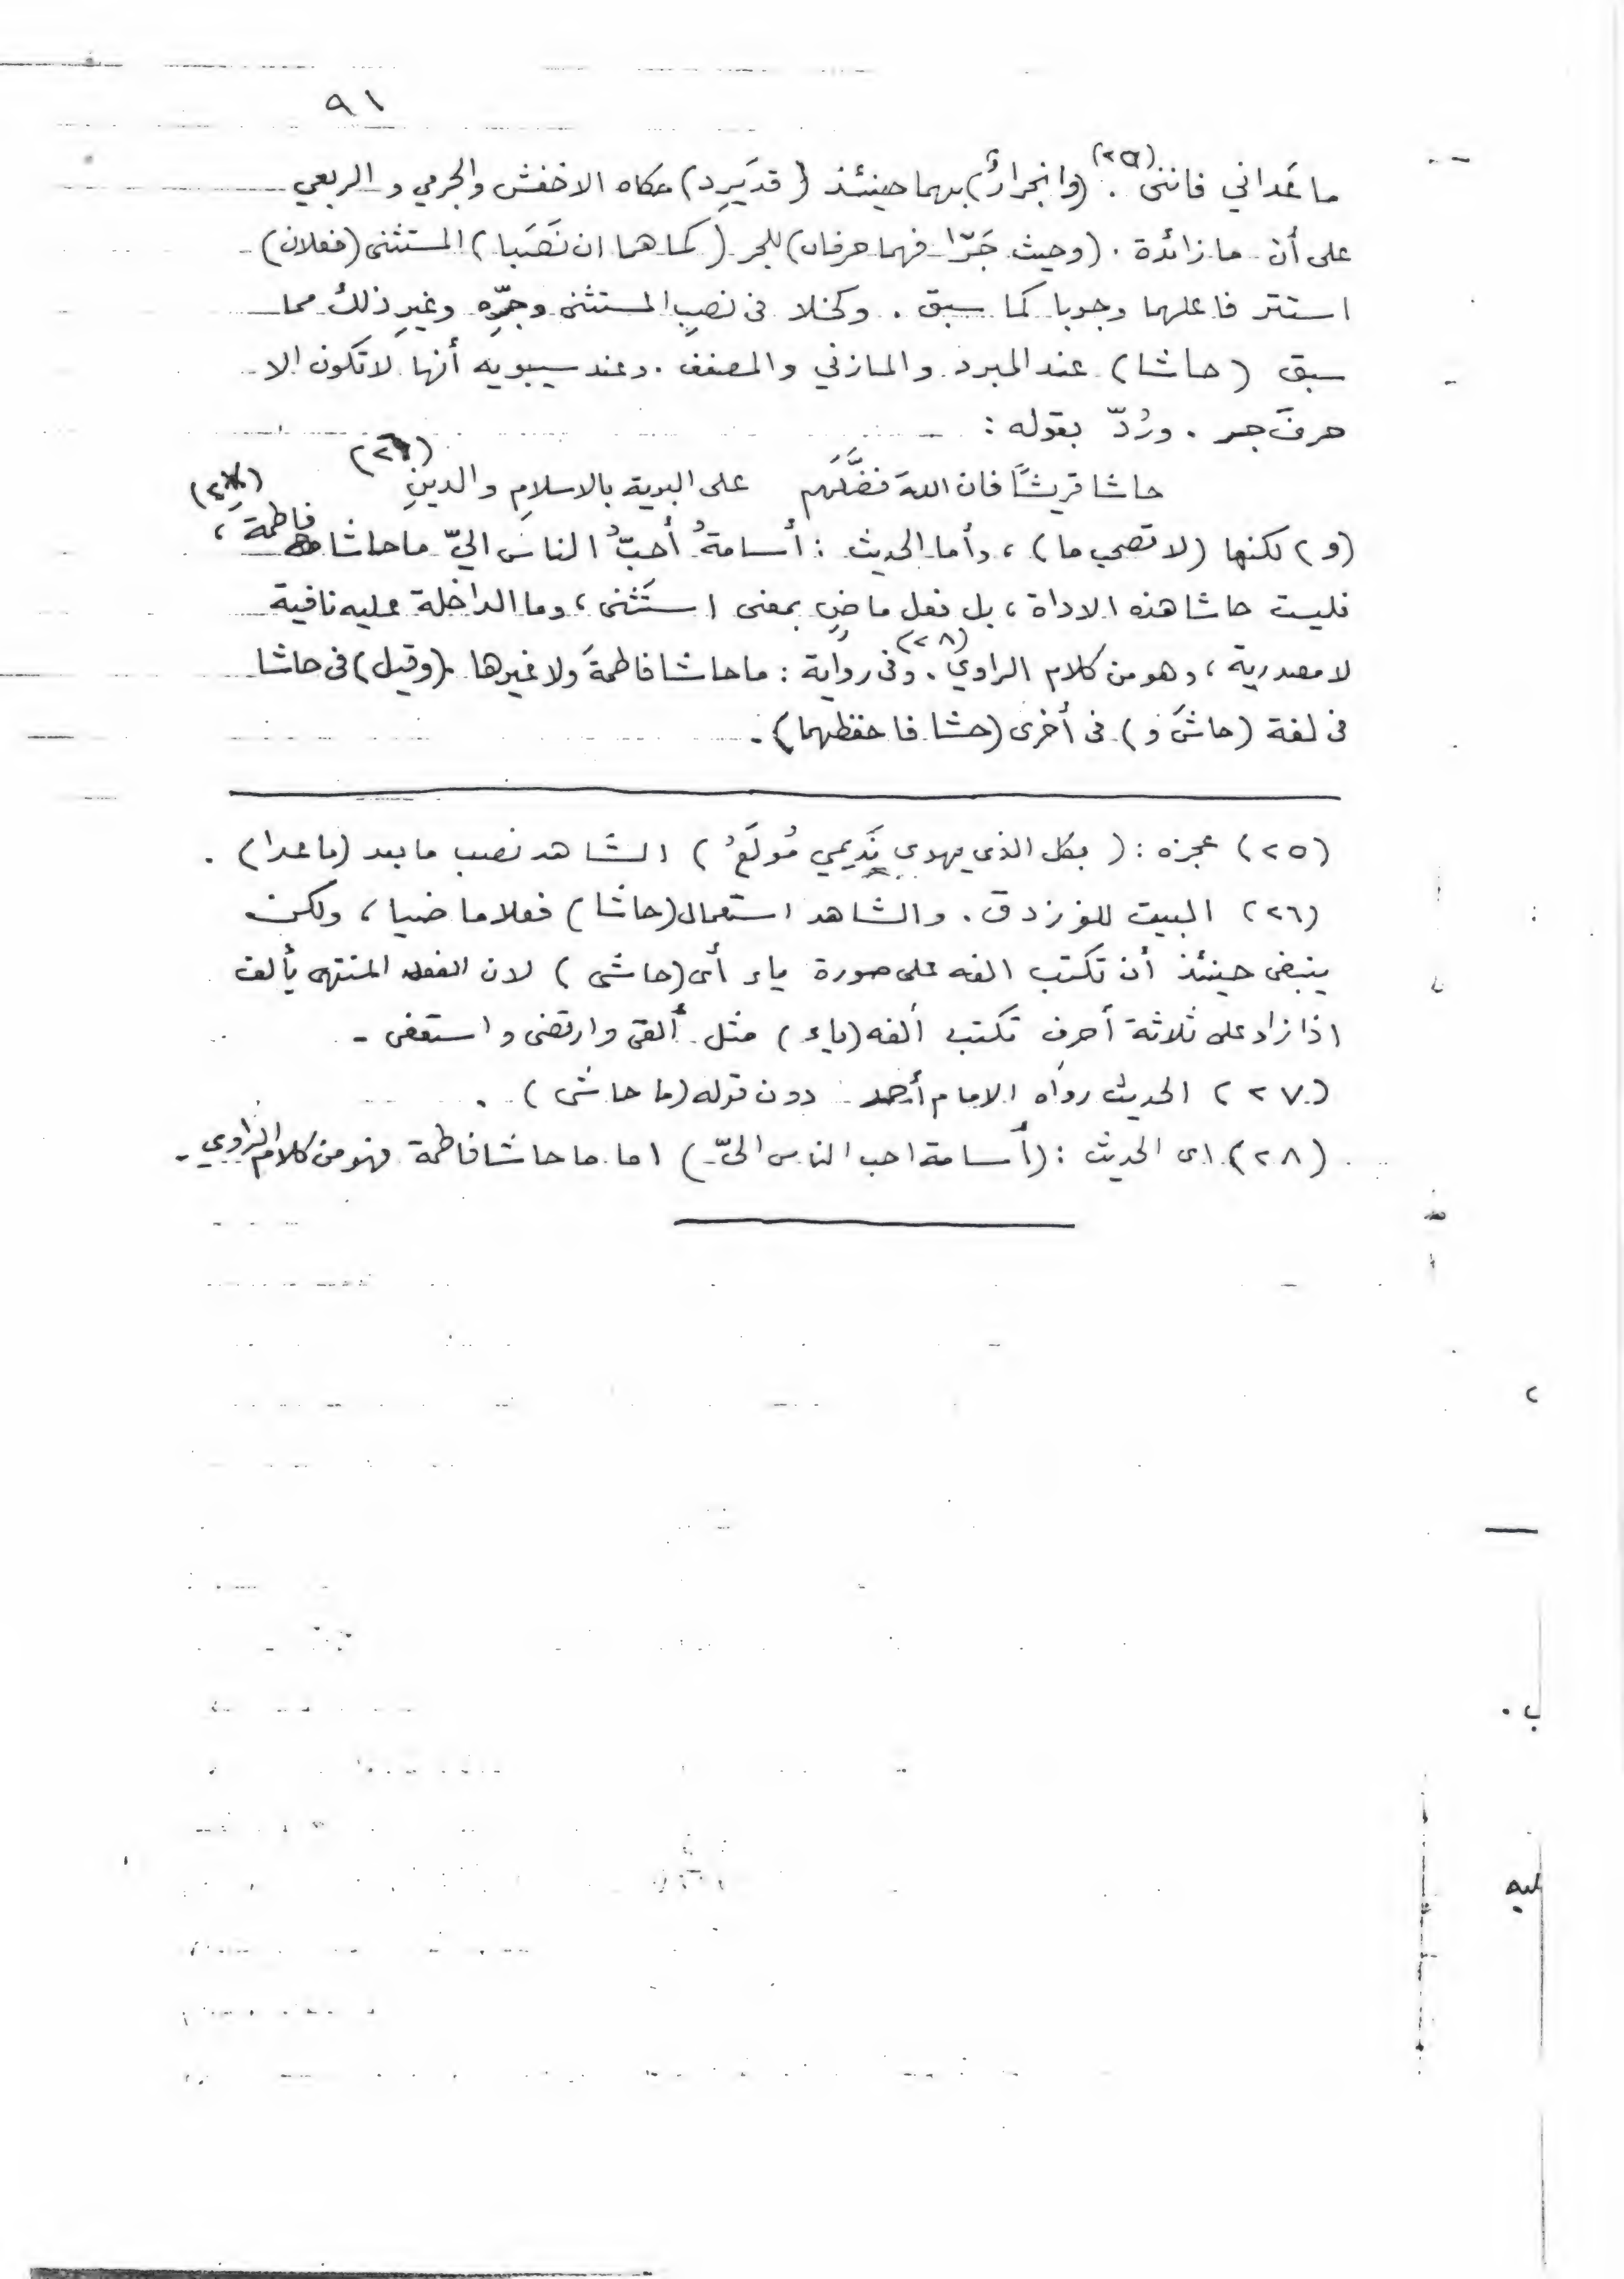 ٩١
ما عَداني فانني (٢٥) . (وانجرارٌ) بهما حينئذ (قد يَرِد) حكاه الاخفش والجرمي و الربعي
على أن ما زائدة . (وحيث جَرّا فهما حرفان) للجر (كما هما ان نَصَبا) المستثنى (فعلان)
استتر فاعلهما وجوبا كما سبق . وكخلا فى نصبِ المستثنى وجرِّه وغيرِ ذلك مما
سبق (حاشا) عند المبرد والمازني والمصنف . وعند سيبويه أنها لا تكون الا
حرفَ جر . ورُدّ بقوله :
حاشا قريشًا فان اللهَ فضَّلَهم على البرية بالاسلامِ والدينِ (٢٦)
(و) لكنها (لا تصحب ما) ، وأما الحديث : أسامةُ أحبُّ الناس اليّ ما حاشا فاطمةَ ،
فليست حاشا هذه الاداة ، بل فعل ماضٍ بمعنى استَثنى ، وما الداخلة عليه نافية
لا مصدرية ، وهو من كلام الراوي (٢٨) . وفى رواية : ما حاشا فاطمةَ ولا غيرها . (وقيل) فى حاشا
فى لغة (حاشَ و) فى أخرى (حشا فاحفظهما) .
(٢٥) عجزه : (بكل الذي يهوى نَديمي مُولَعُ) الشاهد نصب ما بعد (ما عدا) .
(٢٦) البيت للفرزدق . والشاهد استعمال (حاشا) فعلا ماضيا ، ولكن
ينبغى حينئذ أن تكتب الفه على صورة ياء أى (حاشى) لان الفعل المنتهى بألف
اذا زاد على ثلاثة أحرف تكتب ألفه (ياء) مثل ألقى وارتضى واستعفى -
(٢٧) الحديث رواه الامام أحمد دون قوله (ما حاشى) .
(٢٨) اى الحديث : (أسامة احب الناس اليّ) اما ما حاشا فاطمة فهو من كلام الراوي -
ب .
ليه